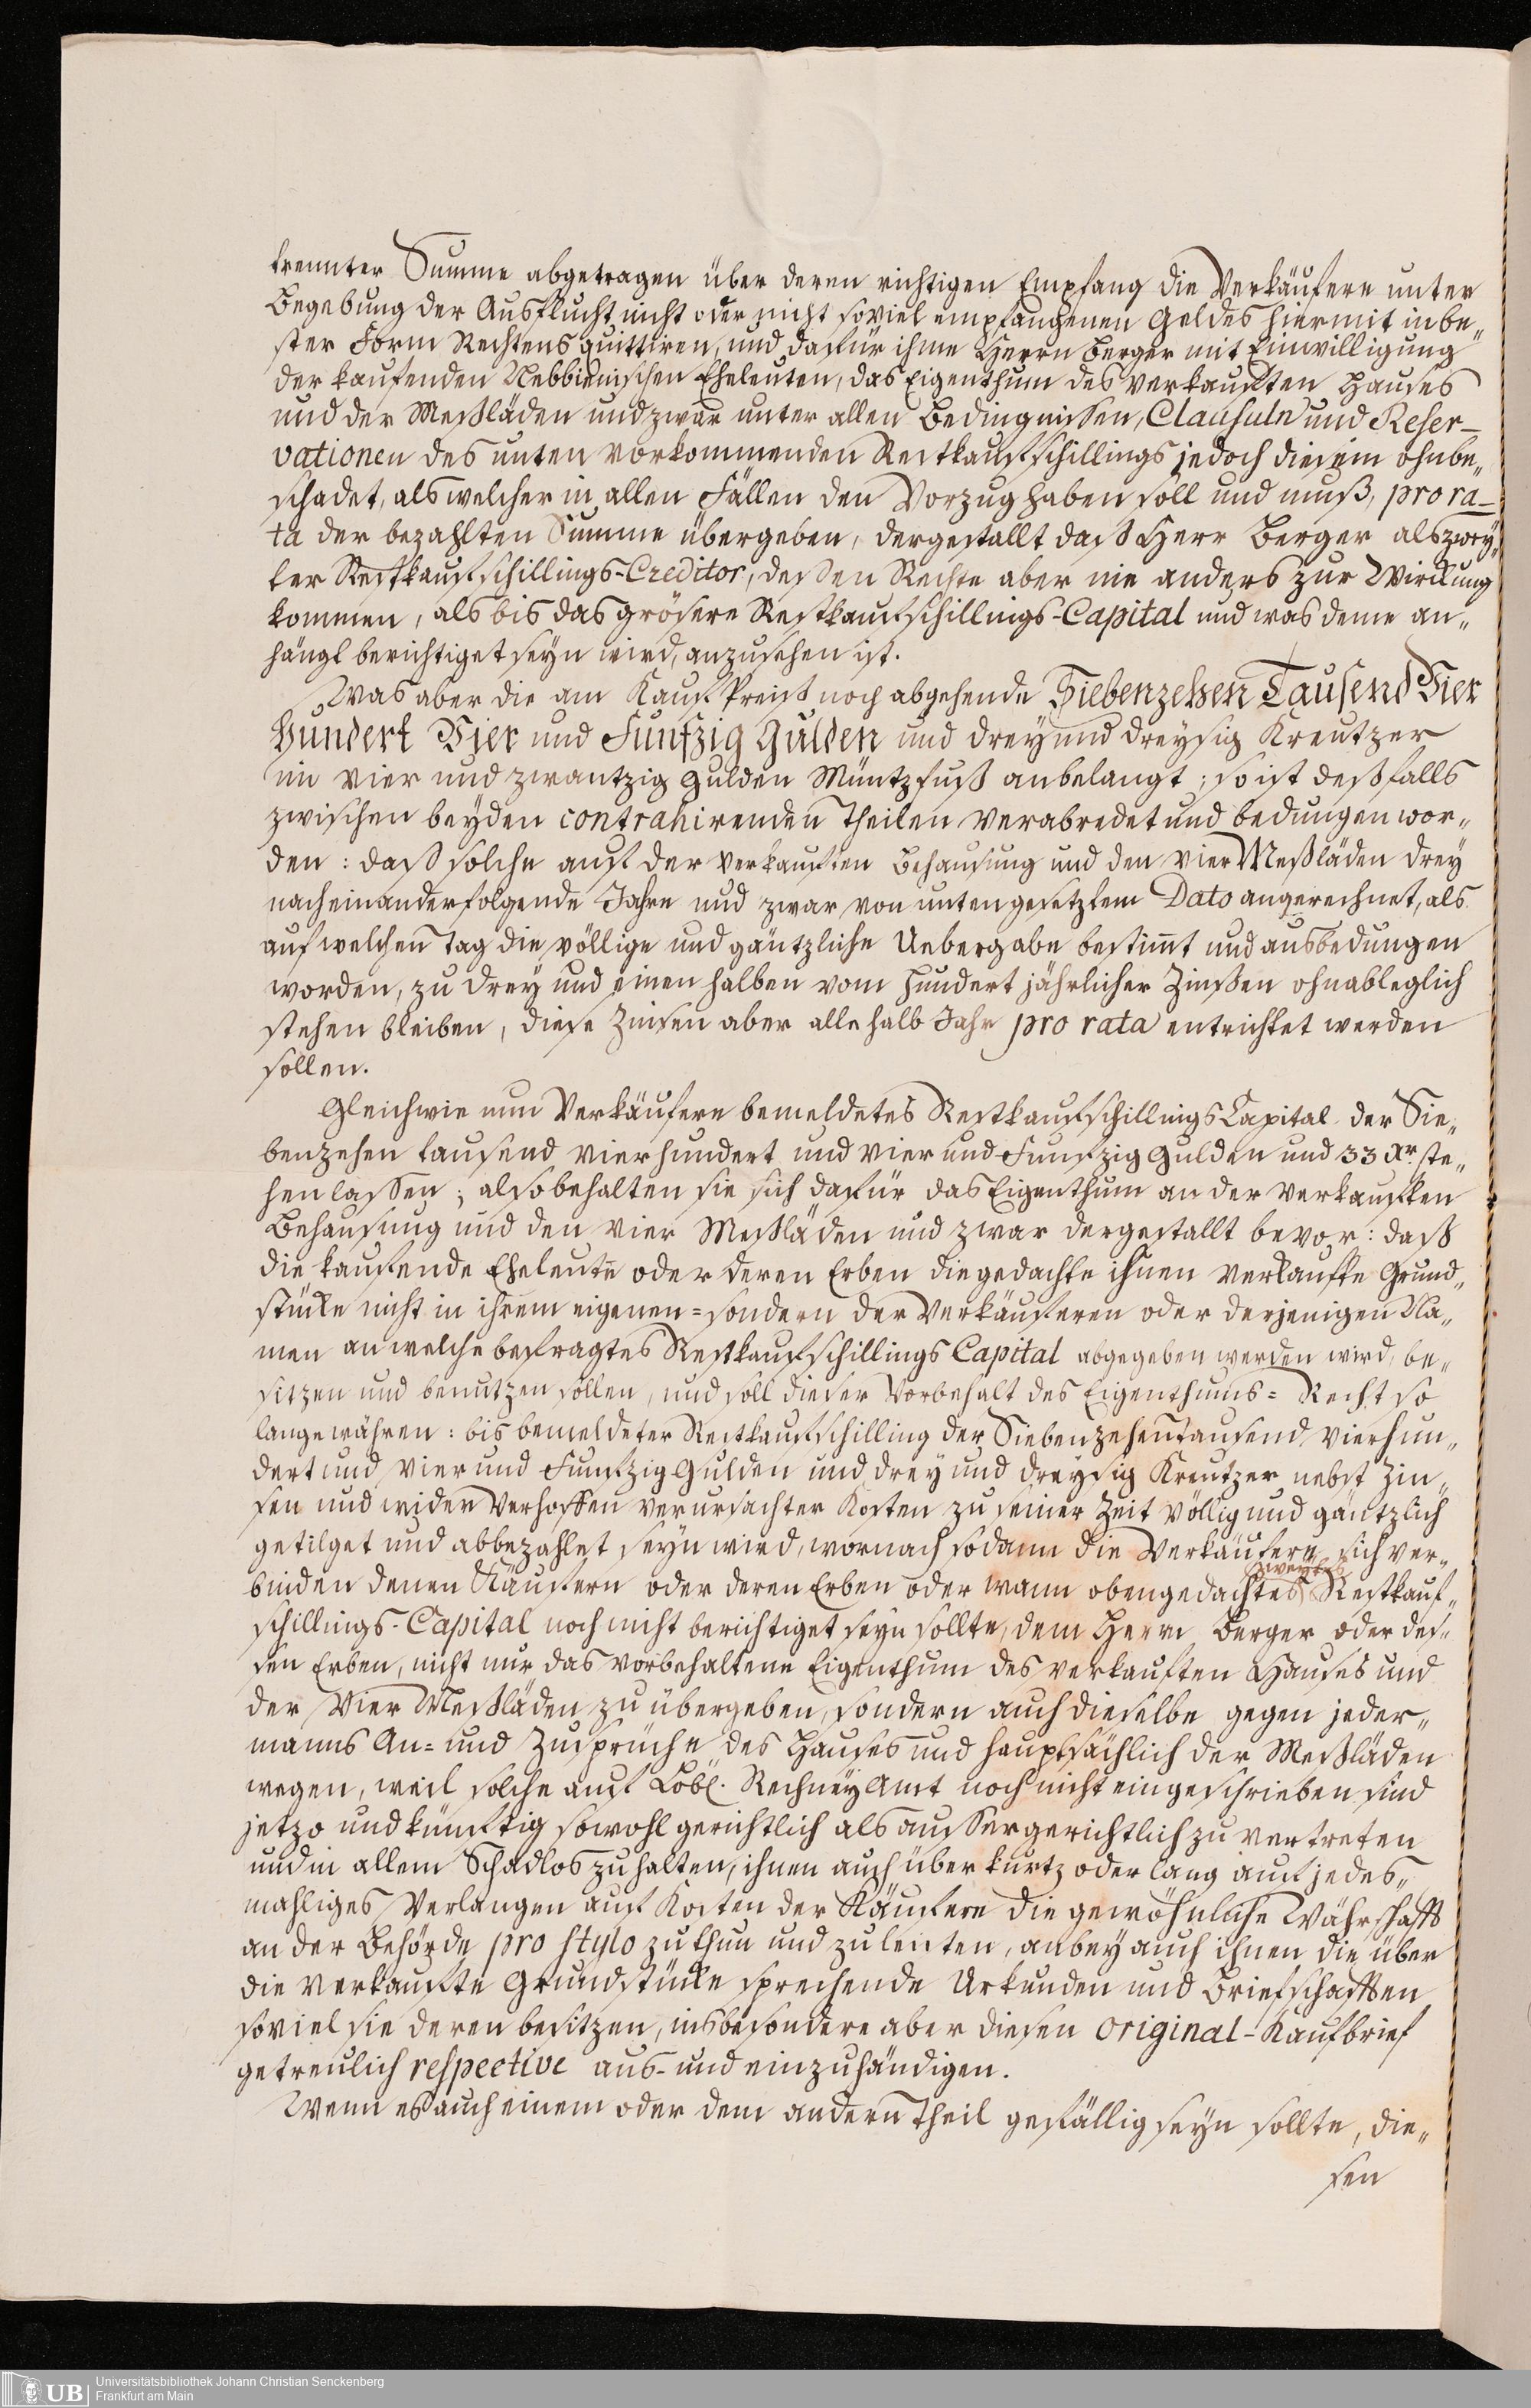 trennter Summe abgetragen über deren richtigen Empfang die Verkäufere unter
Begebung der Ausflucht nicht oder nicht soviel empfangenen Geldes hiermit in be„
ster Form Rechtens quittiren, und dafür ihme Herrn Berger mit Einwilligung
der kaufenden Nebbienischen Eheleuten, das Eigenthum des verkauften Hauses
und der Meßläden und zwar unter allen Bedingnissen, Clausuln und Reser–
vationen des unten vorkommenden Restkaufschillings jedoch diesem ohnbe„
schadet, als welcher in allen Fällen den Vorzug haben soll und muß, pro ra–
ta der bezahlten Summe übergeben, dergestallt daß Herr Berger als zwey„
ter Restkaufschillings-Creditor, dessen Rechte aber nie anders zur Wirckung
kommen, als bis das grösere Restkaufschillings-Capital und was deme an„
hängt berichtiget seyn wird, anzusehen ist.
Was aber die am KaufPreiß noch abgehende Siebenzehen Tausend Vier
Hundert Vier und Funfzig Gulden und drey und dreysig Kreutzer
im vier und zwantzig Gulden Müntzfuß anbelangt; so ist deßfalls
zwischen beyden contrahirenden Theilen verabredet und bedungen wor„
den: daß solche auf der verkauften Behausung und den vier Meßläden drey
nacheinanderfolgende Jahre und zwar von unten gesetztem Dato angerechnet, als
auf welchen Tag die völlige und gäntzliche Uebergabe bestimt und ausbedungen
worden, zu drey und einen halben vom Hundert jährlicher Zinßen ohnableglich
stehen bleiben, diese Zinsen aber alle halb Jahr pro rata entrichtet werden
sollen.
Gleichwie nun Verkäufere bemeldetes Restkaufschillings Capital der Sie„
benzehen tausend vierhundert und vier und Funfzig Gulden und 33 Xr. ste„
hen lassen; also behalten sie sich dafür das Eigenthum an der verkauften
Behausung und den vier Meßläden und zwar dergestallt bevor: daß
die kaufende Eheleute oder deren Erben die gedachte ihnen verkaufte Grund„
stücke nicht in ihrem eigenen= sondern der Verkäuferen oder derjenigen Na„
men an welche befragtes Restkaufschillings Capital abgegeben werden wird, be„
sitzen und benutzen sollen, und soll dieser Vorbehalt des Eigenthums= Recht so
lange währen: bis bemeldeter Restkaufschilling der Siebenzehentausend vierhun„
dert und vier und Funfzig Gulden und drey und dreysig Kreutzer nebst Zin„
sen und wider Verhoffen verursachter Kosten zu seiner Zeit völlig und gäntzlich
getilget und abbezahlet seyn wird, wornach sodann die Verkäufere sich ver„
binden denen Käufern oder deren Erben oder wann obengedachtes zweytes Restkauf„
schillings-Capital noch nicht berichtiget seyn sollte, dem Herrn Berger oder des„
sen Erben, nicht nur das vorbehaltene Eigenthum des verkauften Hauses und
der vier Meßläden zu übergeben, sondern auch dieselbe gegen jeder„
manns An= und Zusprüche des Hauses und hauptsächlich der Meßläden
wegen, weil solche auf Löbl. Rechney Amt noch nicht eingeschrieben sind
jetzo und künftig sowohl gerichtlich als aussergerichtlich zu vertreten
und in allem Schadlos zu halten, ihnen auch über kurtz oder lang auf jedes„
mahliges Verlangen auf Kosten der Käufere die gewöhnliche Währschafft
an der Behörde pro stylo zu thun und zu leisten, anbey auch ihnen die über
die verkaufte Grundstücke sprechende Urkunden und Briefschafften
soviel sie deren besitzen, insbesondere aber diesen original-Kaufbrief
getreulich respective aus- und einzuhändigen.
Wenn es auch einem oder dem andern Theil gefällig seyn sollte, die„
sen
UB
Universitätsbibliothek Johann Christian Senckenberg
Frankfurt am Main